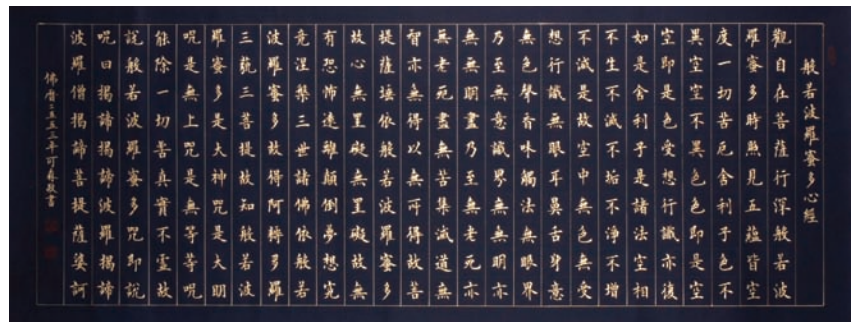 般若波羅蜜多心經
觀自在菩薩行深般若波
羅蜜多時照見五蘊皆空
度一切苦厄舍利子色不
異空空不異色色即是空
空即是色受想行識亦復
如是舍利子是諸法空相
不生不滅不垢不淨不增
不減是故空中無色無受
想行識無眼耳鼻舌身意
無色聲香味觸法無眼界
乃至無意識界無無明亦
無無明盡乃至無老死亦
無老死盡無苦集滅道無
智亦無得以無所得故菩
提薩埵依般若波羅蜜多
故心無罣礙無罣礙故無
有恐怖遠離顛倒夢想究
竟涅槃三世諸佛依般若
波羅蜜多故得阿耨多羅
三藐三菩提故知般若波
羅蜜多是大神咒是大明
咒是無上咒是無等等咒
能除一切苦真實不虛故
說般若波羅蜜多咒即說
咒曰揭諦揭諦波羅揭諦
波羅僧揭諦菩提薩婆訶
佛曆二五五三年可敬書